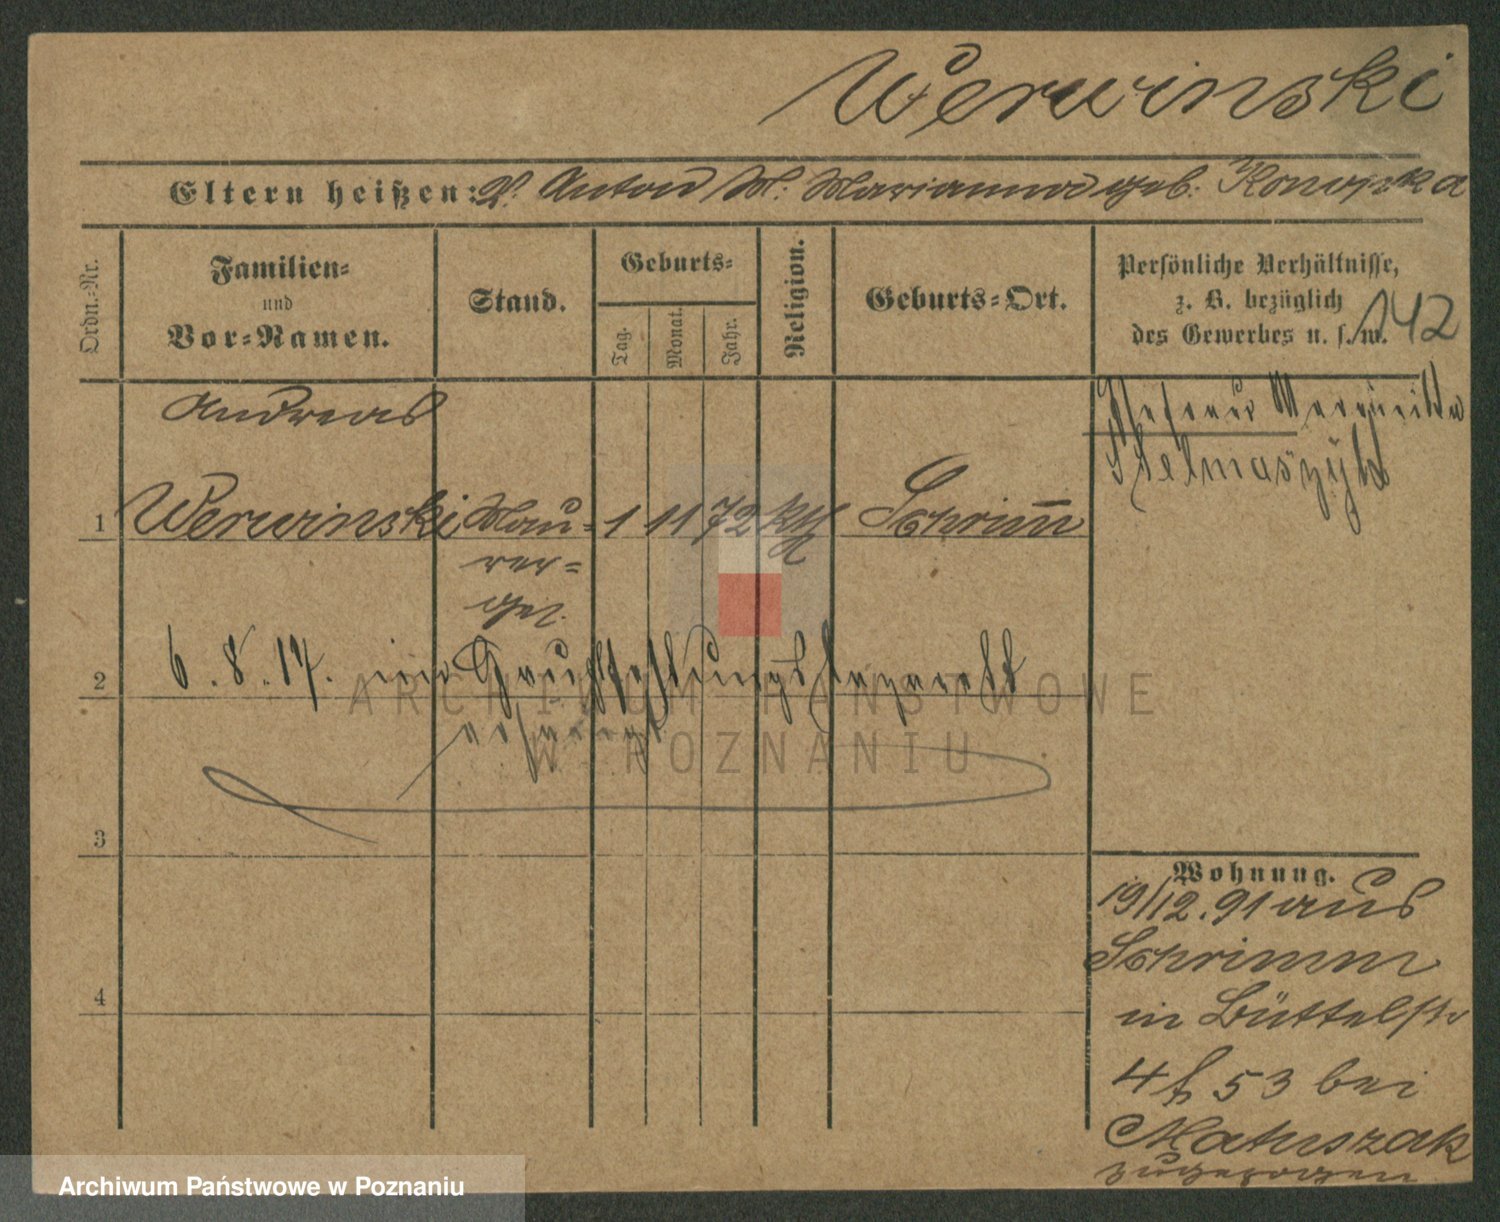 Werwinski
Eltern heißen: V. Anton M. Marianna geb. Konopka
Ordn.-Nr.
Familien-
und
Vor-Namen.
Stand.
Geburts-
Tag.
Monat.
Jahr.
Religion.
Geburts-Ort.
Persönliche Verhältnisse,
z. B. bezüglich
des Gewerbes u. s. w. 142
Andreas
Ehefrau
Stelmaszyk
1 Werwinski Mau- 1 11 72 kth Schrim̄
rer-
ges.
2 6.8.17. Festungslazarett
3
4
Wohnung.
19/12.91 aus
Schrimm
in Büttelstr
4 53 bei
Matuszak
zugezogen
ARCHIWUM PAŃSTWOWE
W POZNANIU
Archiwum Państwowe w Poznaniu